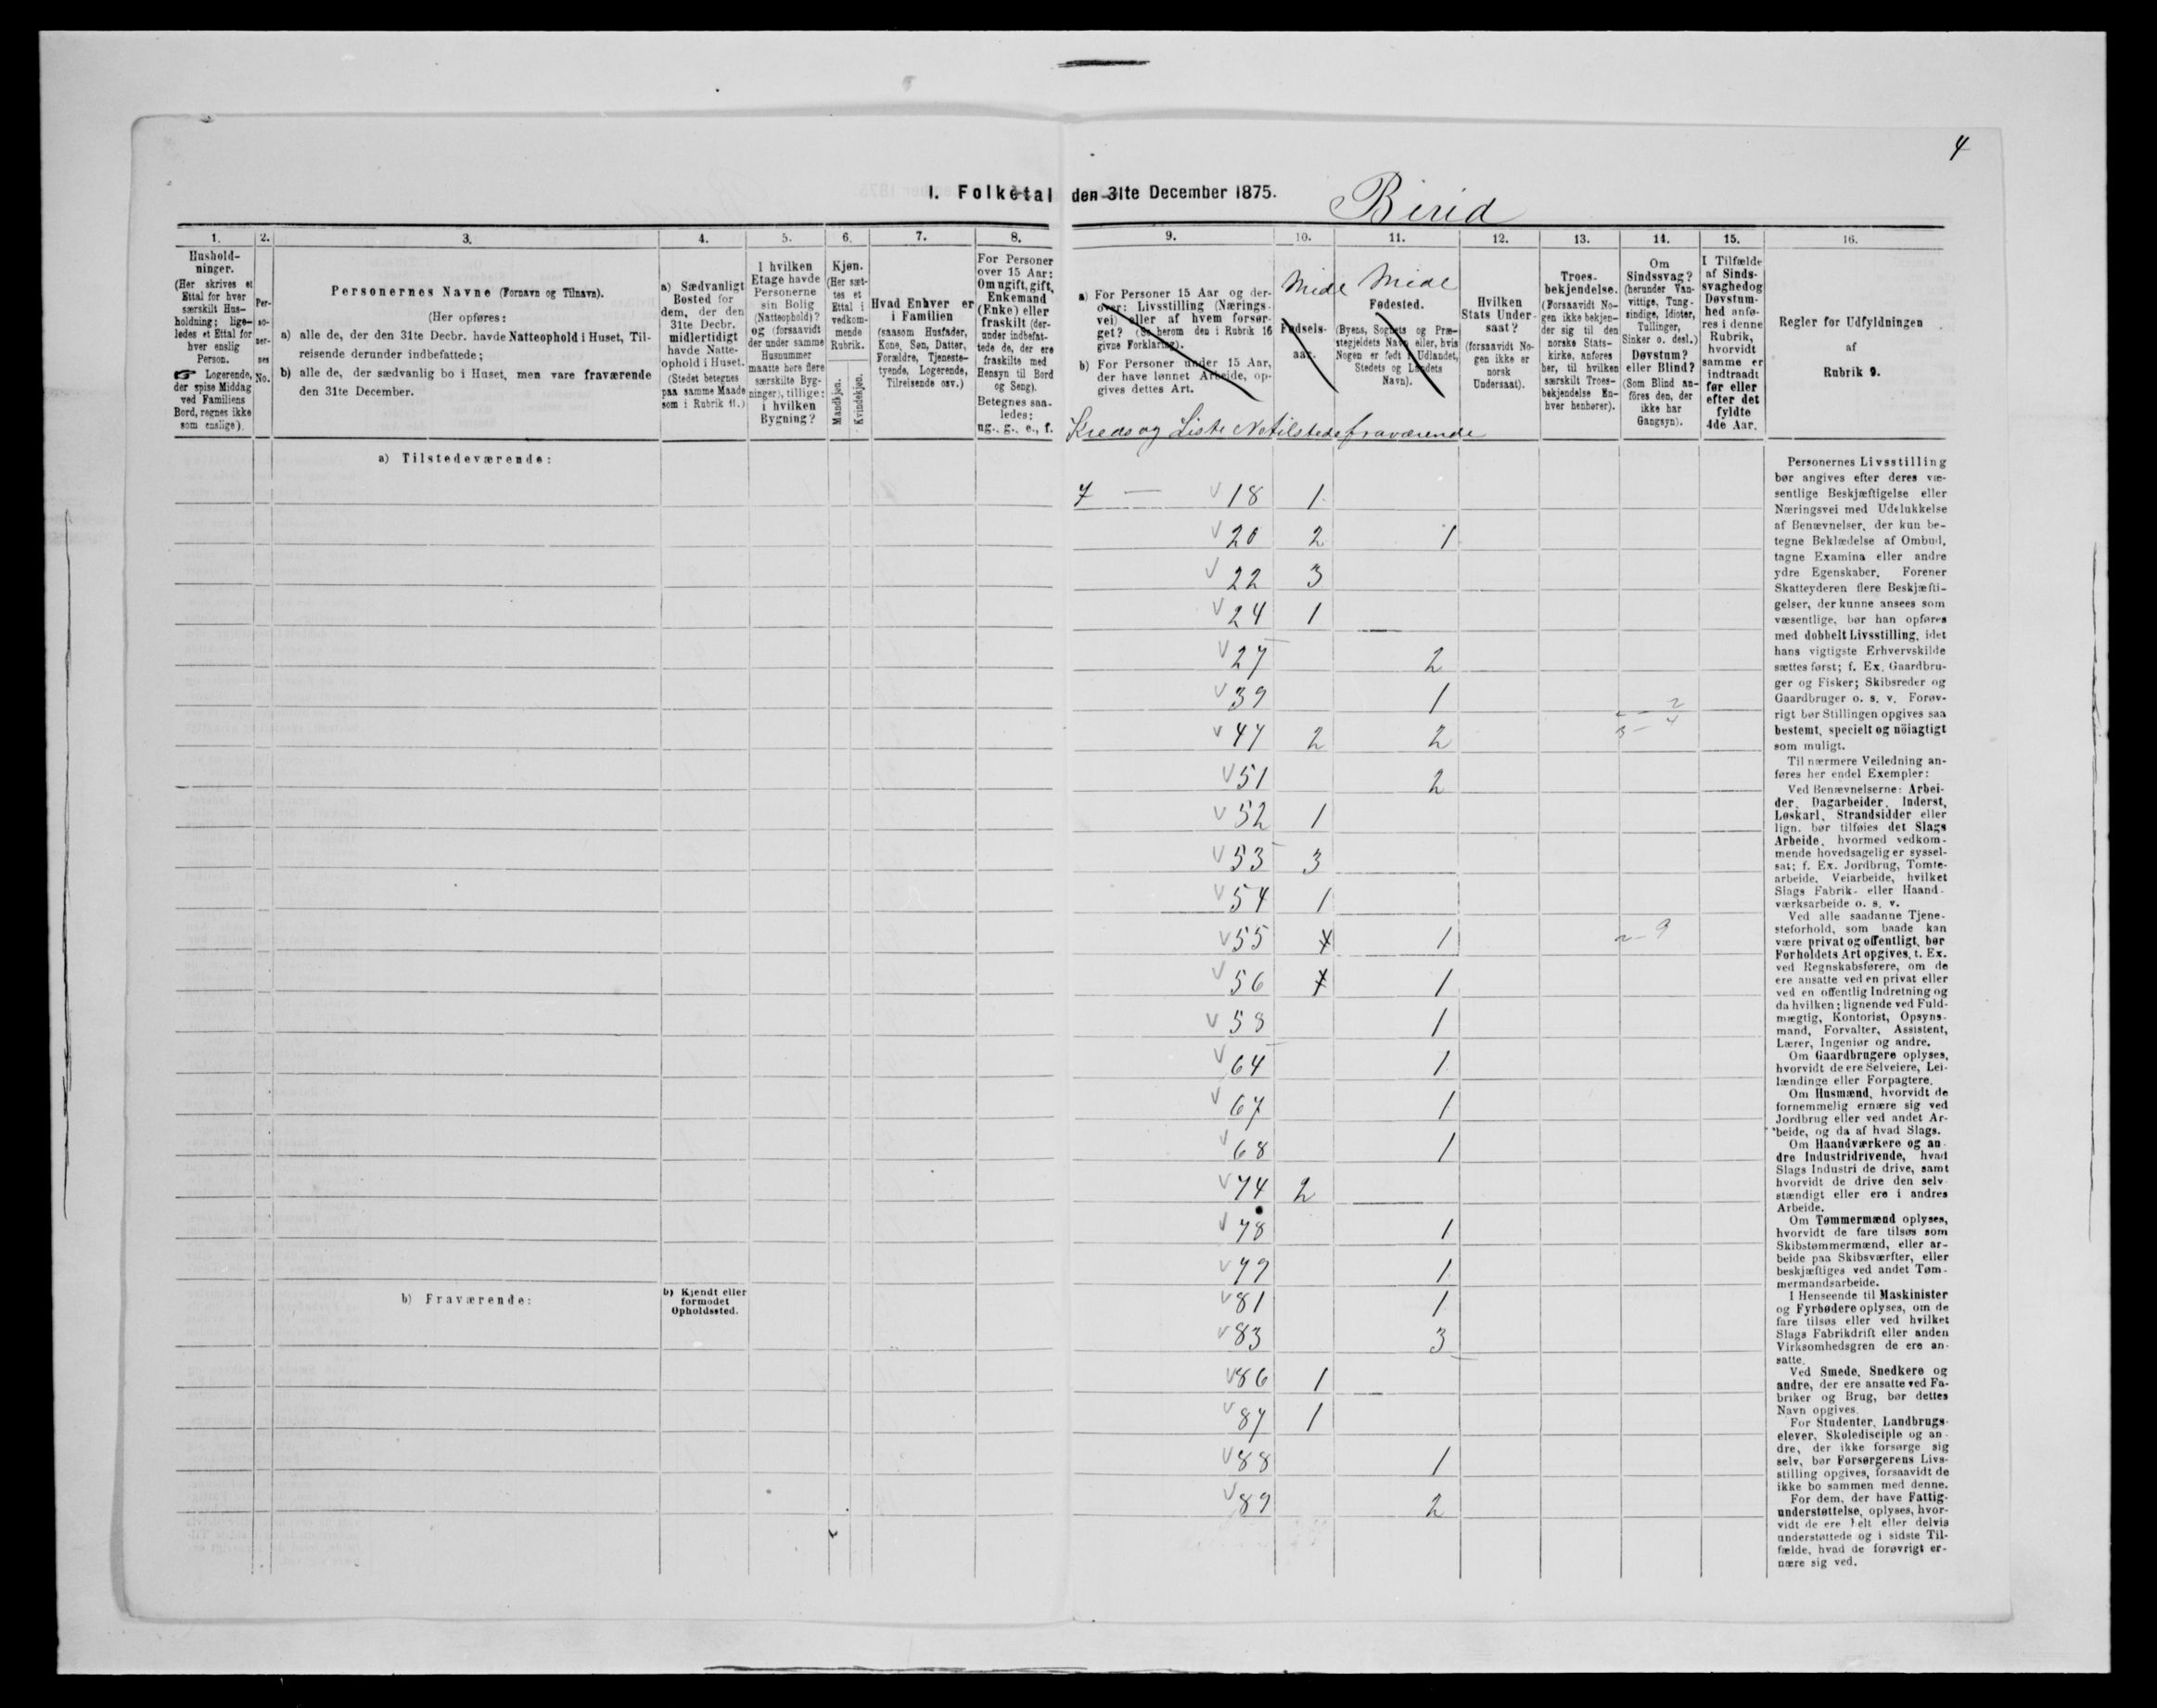 4
I. Folketal den 31te December 1875.
Birid
1.
2.
3.
4.
5.
6.
7.
8.
9.
10.
11.
12.
13.
14.
15.
16.
Hushold-
ninger.
(Her skrives et
Ettal for hver
særskilt Hus-
holdning; lige-
ledes et Ettal for
hver enslig
Person.
☞ Logerende,
der spise Middag
ved Familiens
Bord, regnes ikke
som enslige).
Per-
so-
ner-
nes
No.
Personernes Navne (Fornavn og Tilnavn).
(Her opføres:
a) alle de, der den 31te Decbr. havde Natteophold i Huset, Til-
reisende derunder indbefattede;
b) alle de, der sædvanlig bo i Huset, men vare fraværende
den 31te December.
a) Sædvanligt
Bosted for
dem, der den
31te Decbr.
midlertidigt
havde Natte-
ophold i Huset.
(Stedet betegnes
paa samme Maade
som i Rubrik 11.)
I hvilken
Etage havde
Personerne
sin Bolig
(Natteophold)?
og (forsaavidt
der under samme
Husnummer
maatte høre flere
særskilte Byg-
ninger), tillige:
i hvilken
Bygning?
Kjøn.
(Her sæt-
tes et
Ettal i
vedkom-
mende
Rubrik.
Mandkjøn.
Kvindekjøn.
Hvad Enhver er
i Familien
(saasom Husfader,
Kone, Søn, Datter,
Forældre, Tjeneste-
tyende, Logerende,
Tilreisende osv.)
For Personer
over 15 Aar:
Om ugift, gift,
Enkemand
(Enke) eller
fraskilt (der-
under indbefat-
tede de, der ere
fraskilte med
Hensyn til Bord
og Seng).
Betegnes saa-
ledes:
ug., g., e., f.
a) For Personer 15 Aar og der-
over: Livsstilling (Nærings-
vei) eller af hvem forsør-
get? (Se herom den i Rubrik 16
givne Forklaring).
b) For Personer under 15 Aar,
der have lønnet Arbeide, op-
gives dettes Art.
Mide
Fødsels-
aar.
Mide
Fødested.
(Byens, Sognets og Præ-
stegjeldets Navn eller, hvis
Nogen er født i Udlandet,
Stedets og Landets
Navn).
Hvilken
Stats Under-
saat?
(forsaavidt No-
gen ikke er
norsk
Undersaat).
Troes-
bekjendelse.
(Forsaavidt No-
gen ikke bekjen-
der sig til den
norske Stats-
kirke, anføres
her, til hvilken
særskilt Troes-
bekjendelse En-
hver henhører).
Om
Sindssvag?
(herunder Van-
vittige, Tung-
sindige, Idioter,
Tullinger,
Sinker o. desl.)
Døvstum?
eller Blind?
(Som Blind an-
føres den, der
ikke har
Gangsyn).
I Tilfælde
af Sinds-
svaghed og
Døvstum-
hed anfø-
res i denne
Rubrik,
hvorvidt
samme er
indtraadt
før eller
efter det
fyldte
4de Aar.
Regler for Udfyldningen
af
Rubrik 9.
Kreds og Liste No tilstede fraværende
a) Tilstedeværende:
7 — 18 1
20 2 1
22 3
24 1
27 2
39 1
2
47 2 2
3 – 4
51 2
52 1
53 3
54 1
55 1
2 9
56 1
58 1
64 1
67 1
68 1
74 2
78 1
79 1
b) Fraværende:
b) Kjendt eller
formodet
Opholdssted.
81 1
83 3
86 1
87 1
88 1
89 2
Personernes Livsstilling
bør angives efter deres væ-
sentlige Beskjæftigelse eller
Næringsvei med Udelukkelse
af Benævnelser, der kun be-
tegne Beklædelse af Ombud,
tagne Examina eller andre
ydre Egenskaber. Forener
Skatteyderen flere Beskjæfti-
gelser, der kunne ansees som
væsentlige, bør han opføres
med dobbelt Livsstilling, idet
hans vigtigste Erhvervskilde
sættes først; f. Ex. Gaardbru-
ger og Fisker; Skibsreder og
Gaardbruger o. s. v. Forøv-
rigt bør Stillingen opgives saa
bestemt, specielt og nöiagtigt
som muligt.
Til nærmere Veiledning an-
føres her endel Exempler:
Ved Benævnelserne: Arbei-
der, Dagarbeider, Inderst,
Løskarl, Strandsidder eller
lign. bør tilføies det Slags
Arbeide, hvormed vedkom-
mende hovedsagelig er syssel-
sat; f. Ex. Jordbrug, Tomte-
arbeide, Veiarbeide, hvilket
Slags Fabrik- eller Haand-
værksarbeide o. s. v.
Ved alle saadanne Tjene-
steforhold, som baade kan
være privat og offentligt, bør
Forholdets Art opgives, t. Ex.
ved Regnskabsførere, om de
ere ansatte ved en privat eller
ved en offentlig Indretning og
da hvilken; lignende ved Fuld-
mægtig, Kontorist, Opsyns-
mand, Forvalter, Assistent,
Lærer, Ingeniør og andre.
Om Gaardbrugere oplyses,
hvorvidt de ere Selveiere, Lei-
lændinge eller Forpagtere.
Om Husmænd, hvorvidt de
fornemmelig ernære sig ved
Jordbrug eller ved andet Ar-
beide, og da af hvad Slags.
Om Haandværkere og an-
dre Industridrivende, hvad
Slags Industri de drive, samt
hvorvidt de drive den selv-
stændigt eller ere i andres
Arbeide.
Om Tømmermænd oplyses,
hvorvidt de fare tilsøs som
Skibstømmermænd, eller ar-
beide paa Skibsværfter, eller
beskjæftiges ved andet Tøm-
mermandsarbeide.
I Henseende til Maskinister
og Fyrbødere oplyses, om de
fare tilsøs eller ved hvilket
Slags Fabrikdrift eller anden
Virksomhedsgren de ere an-
satte.
Ved Smede, Snedkere og
andre, der ere ansatte ved Fa-
briker og Brug, bør dettes
Navn opgives.
For Studenter, Landbrugs-
elever, Skoledisciple og an-
dre, der ikke forsørge sig
selv, bør Forsørgerens Livs-
stilling opgives, forsaavidt de
ikke bo sammen med denne.
For dem, der have Fattig-
understøttelse, oplyses, hvor-
vidt de ere helt eller delvis
understøttede og i sidste Til-
fælde, hvad de forøvrigt er-
nære sig ved.